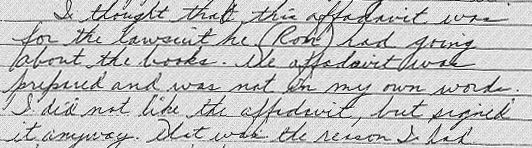 I thought that this affadavit was
for the lawsuit he (Ron) had going
about the books. The affadavit was
prepared and was not in my own words.
I did not like the affidavit, but signed
it anyway. That was the reason I had